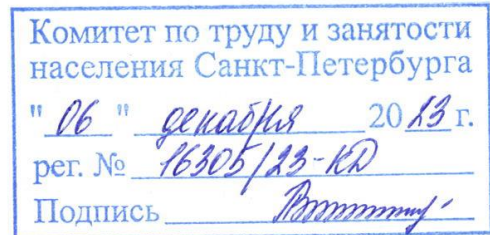 Комитет по труду и занятости
населения Санкт-Петербурга
" 06 " декабря 2023 г.
рег. № 16305/23-КД
Подпись